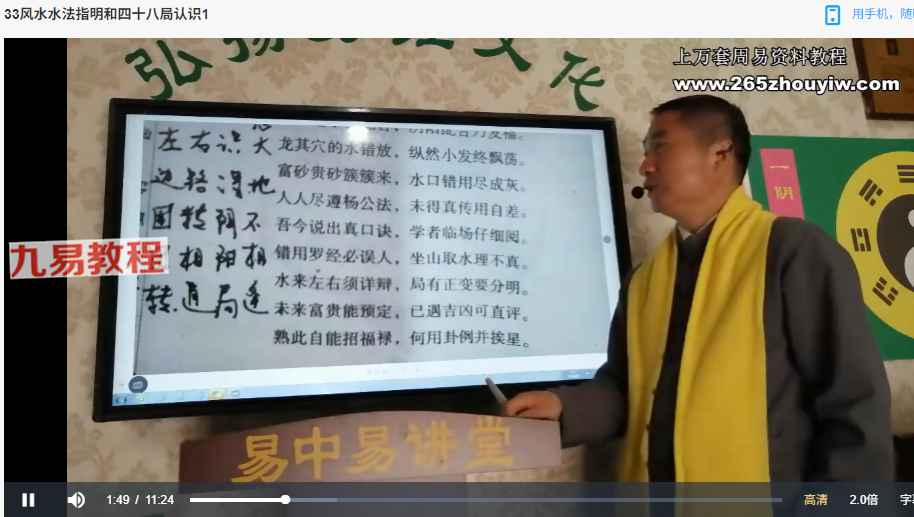 33风水水法指明和四十八局认识1
用手机，随
弘扬
文化
上万套周易资料教程
www.265zhouyiw.com
龙真穴的水错放，纵然小发终飘荡。
富砂贵砂簇簇来，水口错用尽成灰。
人人尽遵杨公法，未得真传用自差。
吾今说出真口诀，学者临场仔细阅。
错用罗经必误人，坐山取水理不真。
水来左右须详辩，局有正变要分明。
未来富贵能预定，已遇吉凶可直评。
熟此自能招福禄，何用卦例并挨星。
左右识天
地
不
阴
相阳相
转道局逢
九易教程
一阴
易中易讲堂
1:49 / 11:24
高清
2.0倍
字